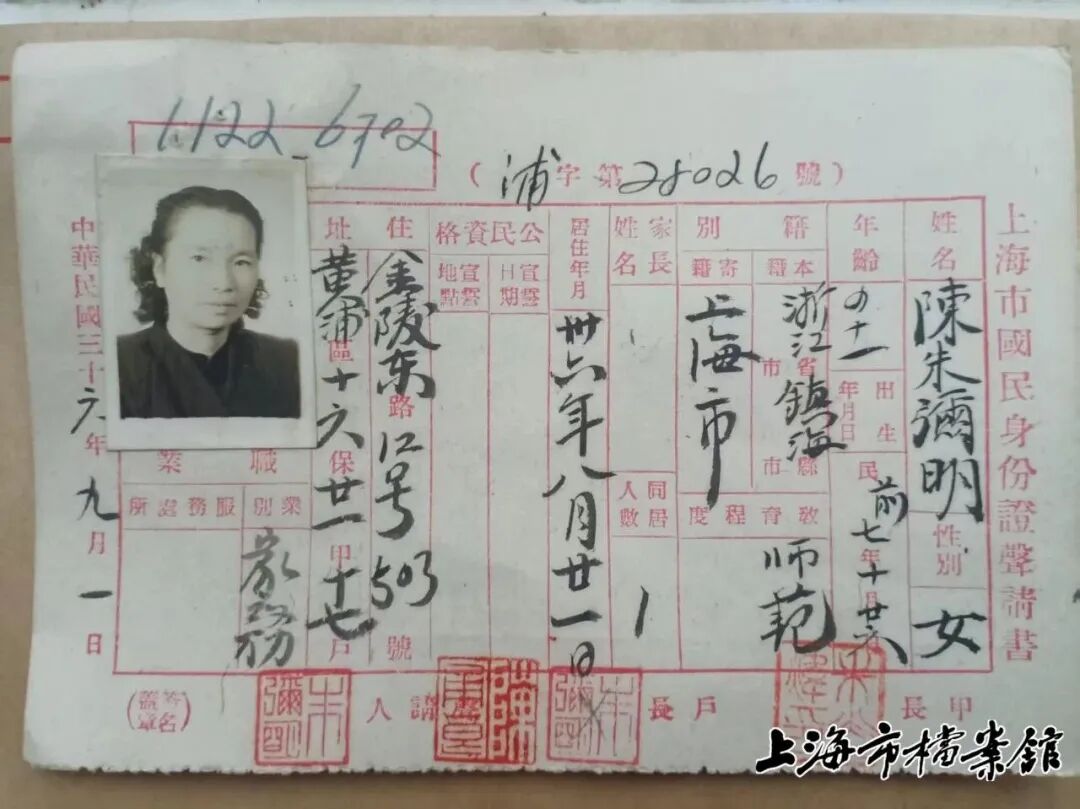 1122-6702
(浦字第28026號)
上海市國民身份證聲請書
姓名 陳朱彌明
性別 女
年齡 四十一
出生年月日 民前七年十月廿六
籍別
本籍 浙江省市鎮海縣市
寄籍 上海市
教育程度 师范
家長姓名
同居人數 1
居住年月 卅六年八月廿一日
公民資格
宣誓日期
宣誓地點
住址 金陵东路12号503號
黄浦區十六保廿一甲十七戶
職業
業別 家務
服務處所
中華民國三十六年九月一日
甲長
戶長 朱彌明
聲請人 朱彌明
(簽名蓋章)
上海市檔案館